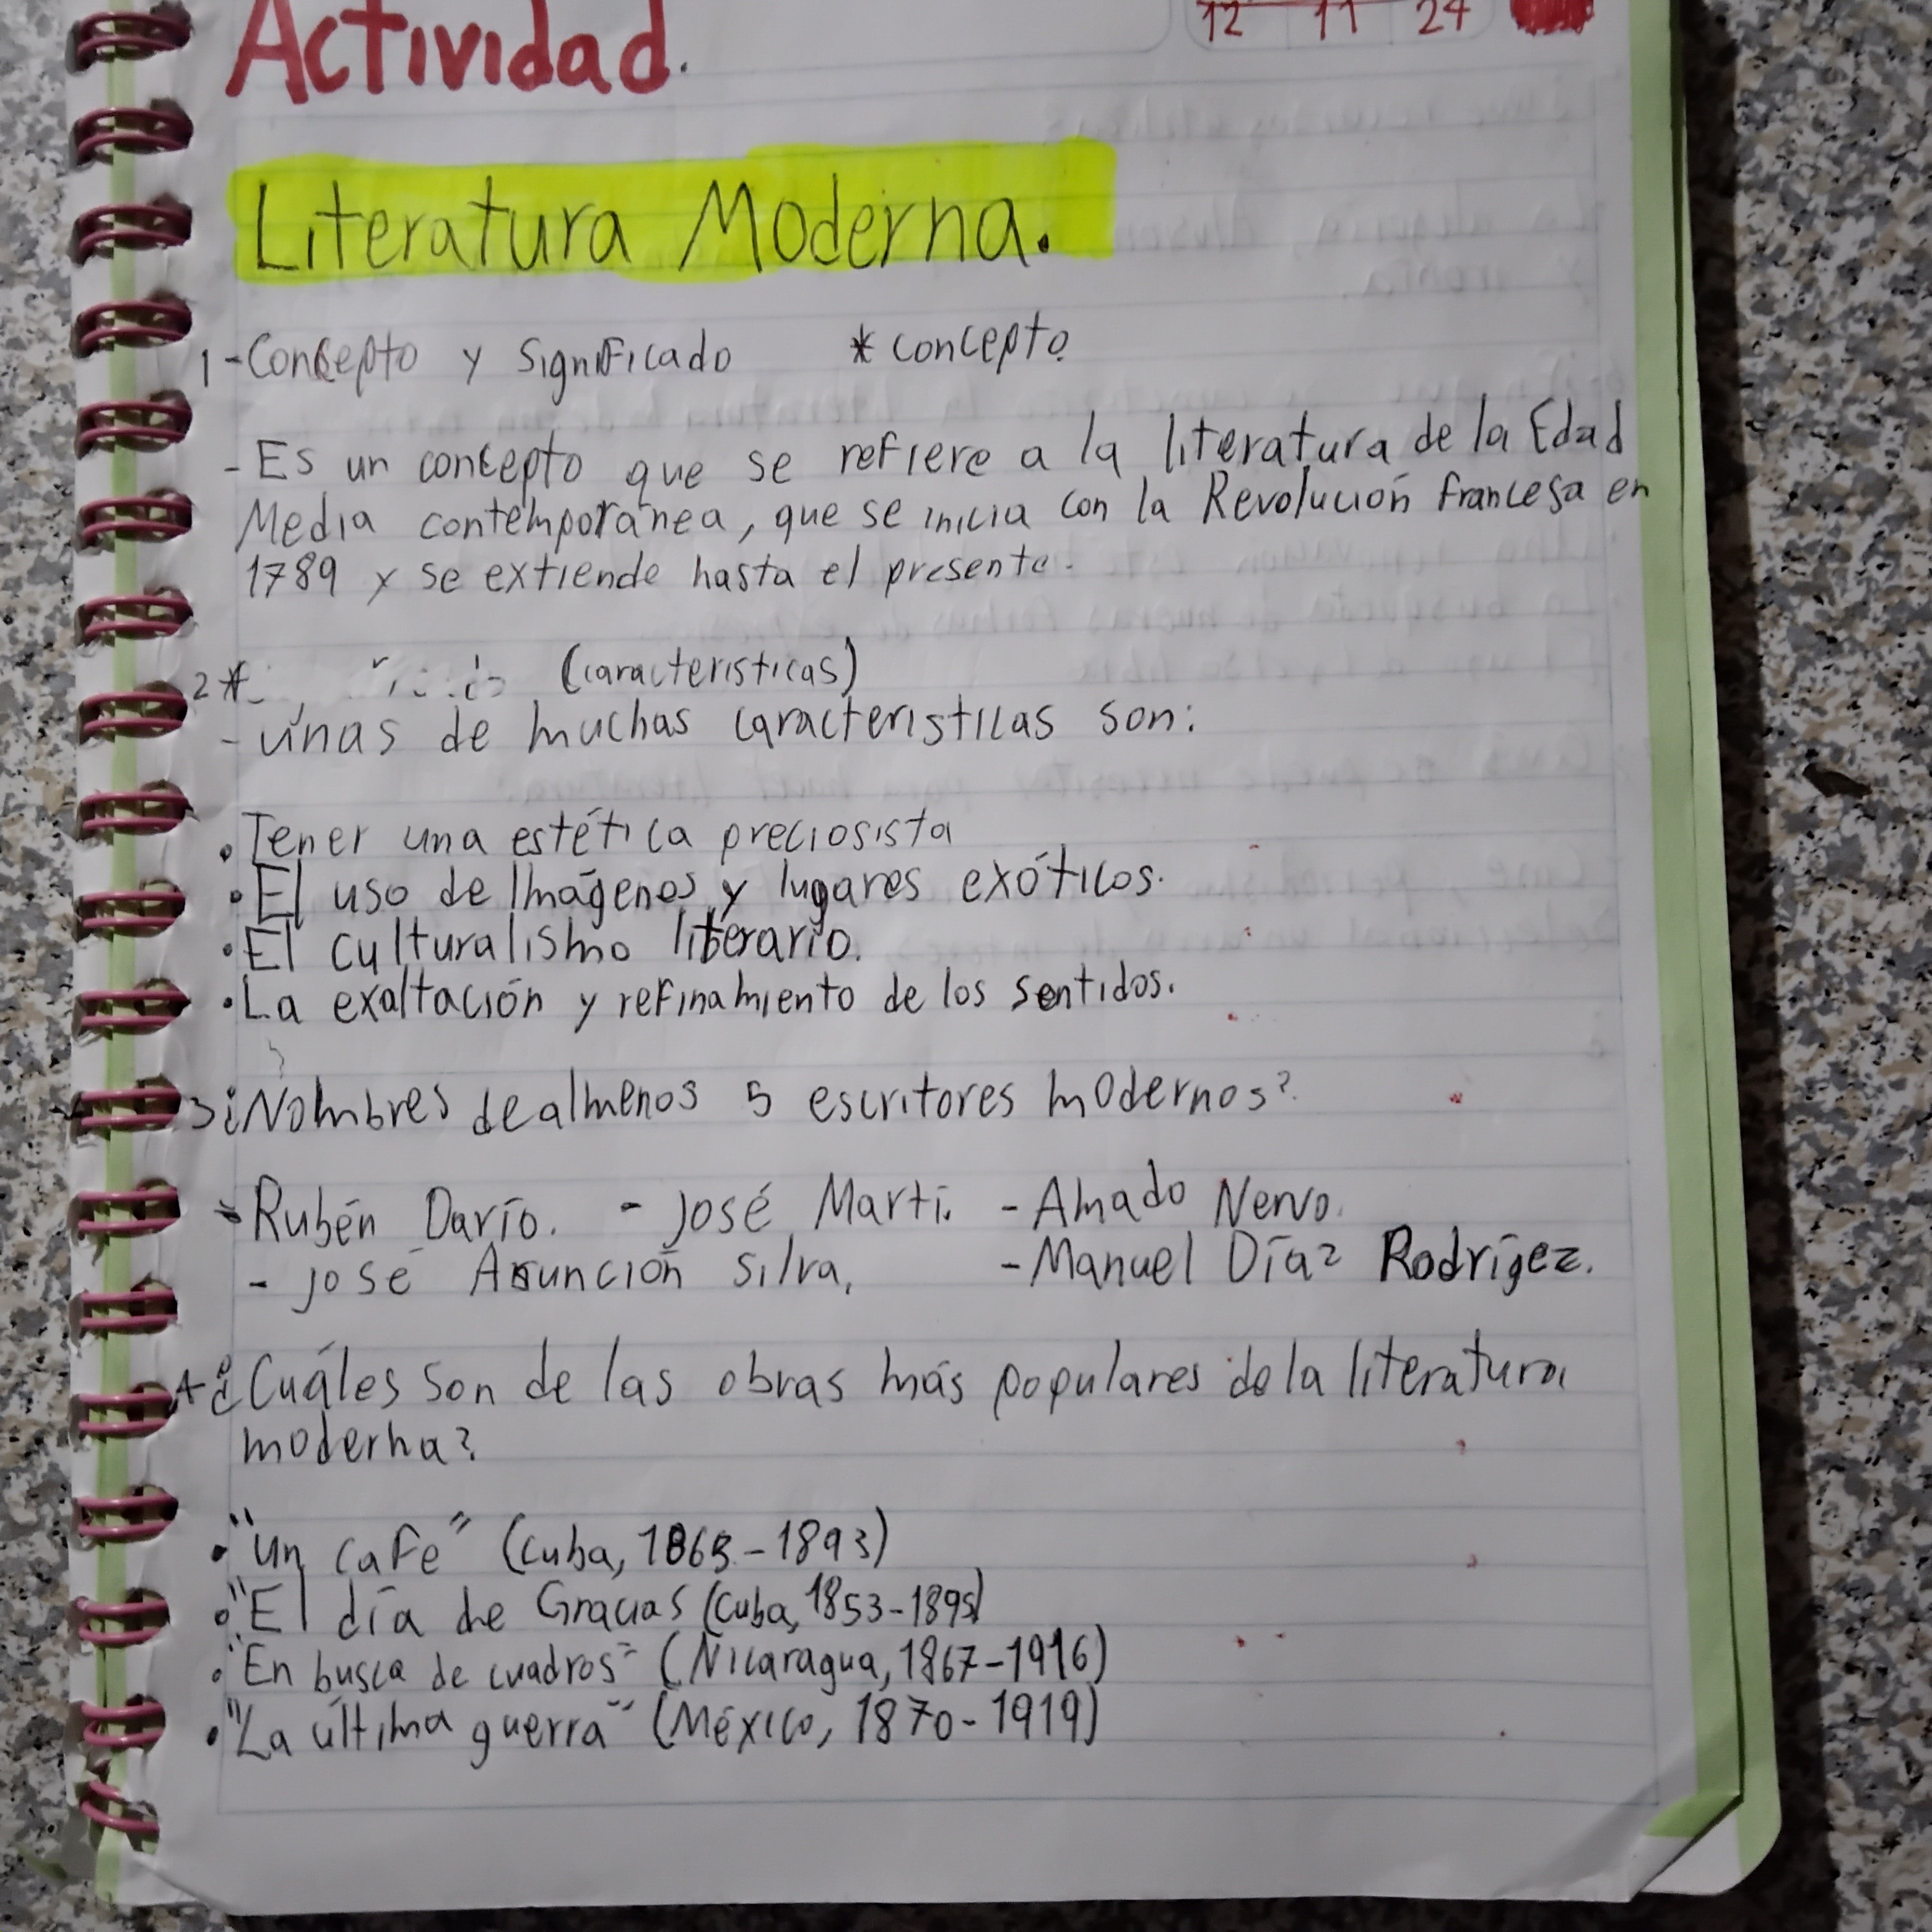 12 11 24
Actividad.
Literatura Moderna.
1-Concepto y Significado *concepto
-Es un concepto que se refiere a la literatura de la Edad
Media contemporánea, que se inicia con la Revolución francesa en
1789 y se extiende hasta el presente.
2* (caracteristicas)
-unas de muchas caracteristicas son:
•Tener una estética preciosista
•El uso de Imágenes y lugares exóticos.
•El culturalismo literario.
•La exaltación y refinamiento de los sentidos.
3¿Nombres de almenos 5 escritores modernos?
-Rubén Darío. - José Martí. -Amado Nervo.
- José Asunción Silva. -Manuel Díaz Rodrígez.
4-¿Cuáles son de las obras más populares de la literatura
moderna?
•"Un café" (Cuba, 1863-1893)
•"El día de Gracias (Cuba, 1853-1895)
•"En busca de cuadros" (Nicaragua, 1867-1916)
•"La última guerra" (México, 1870-1919)